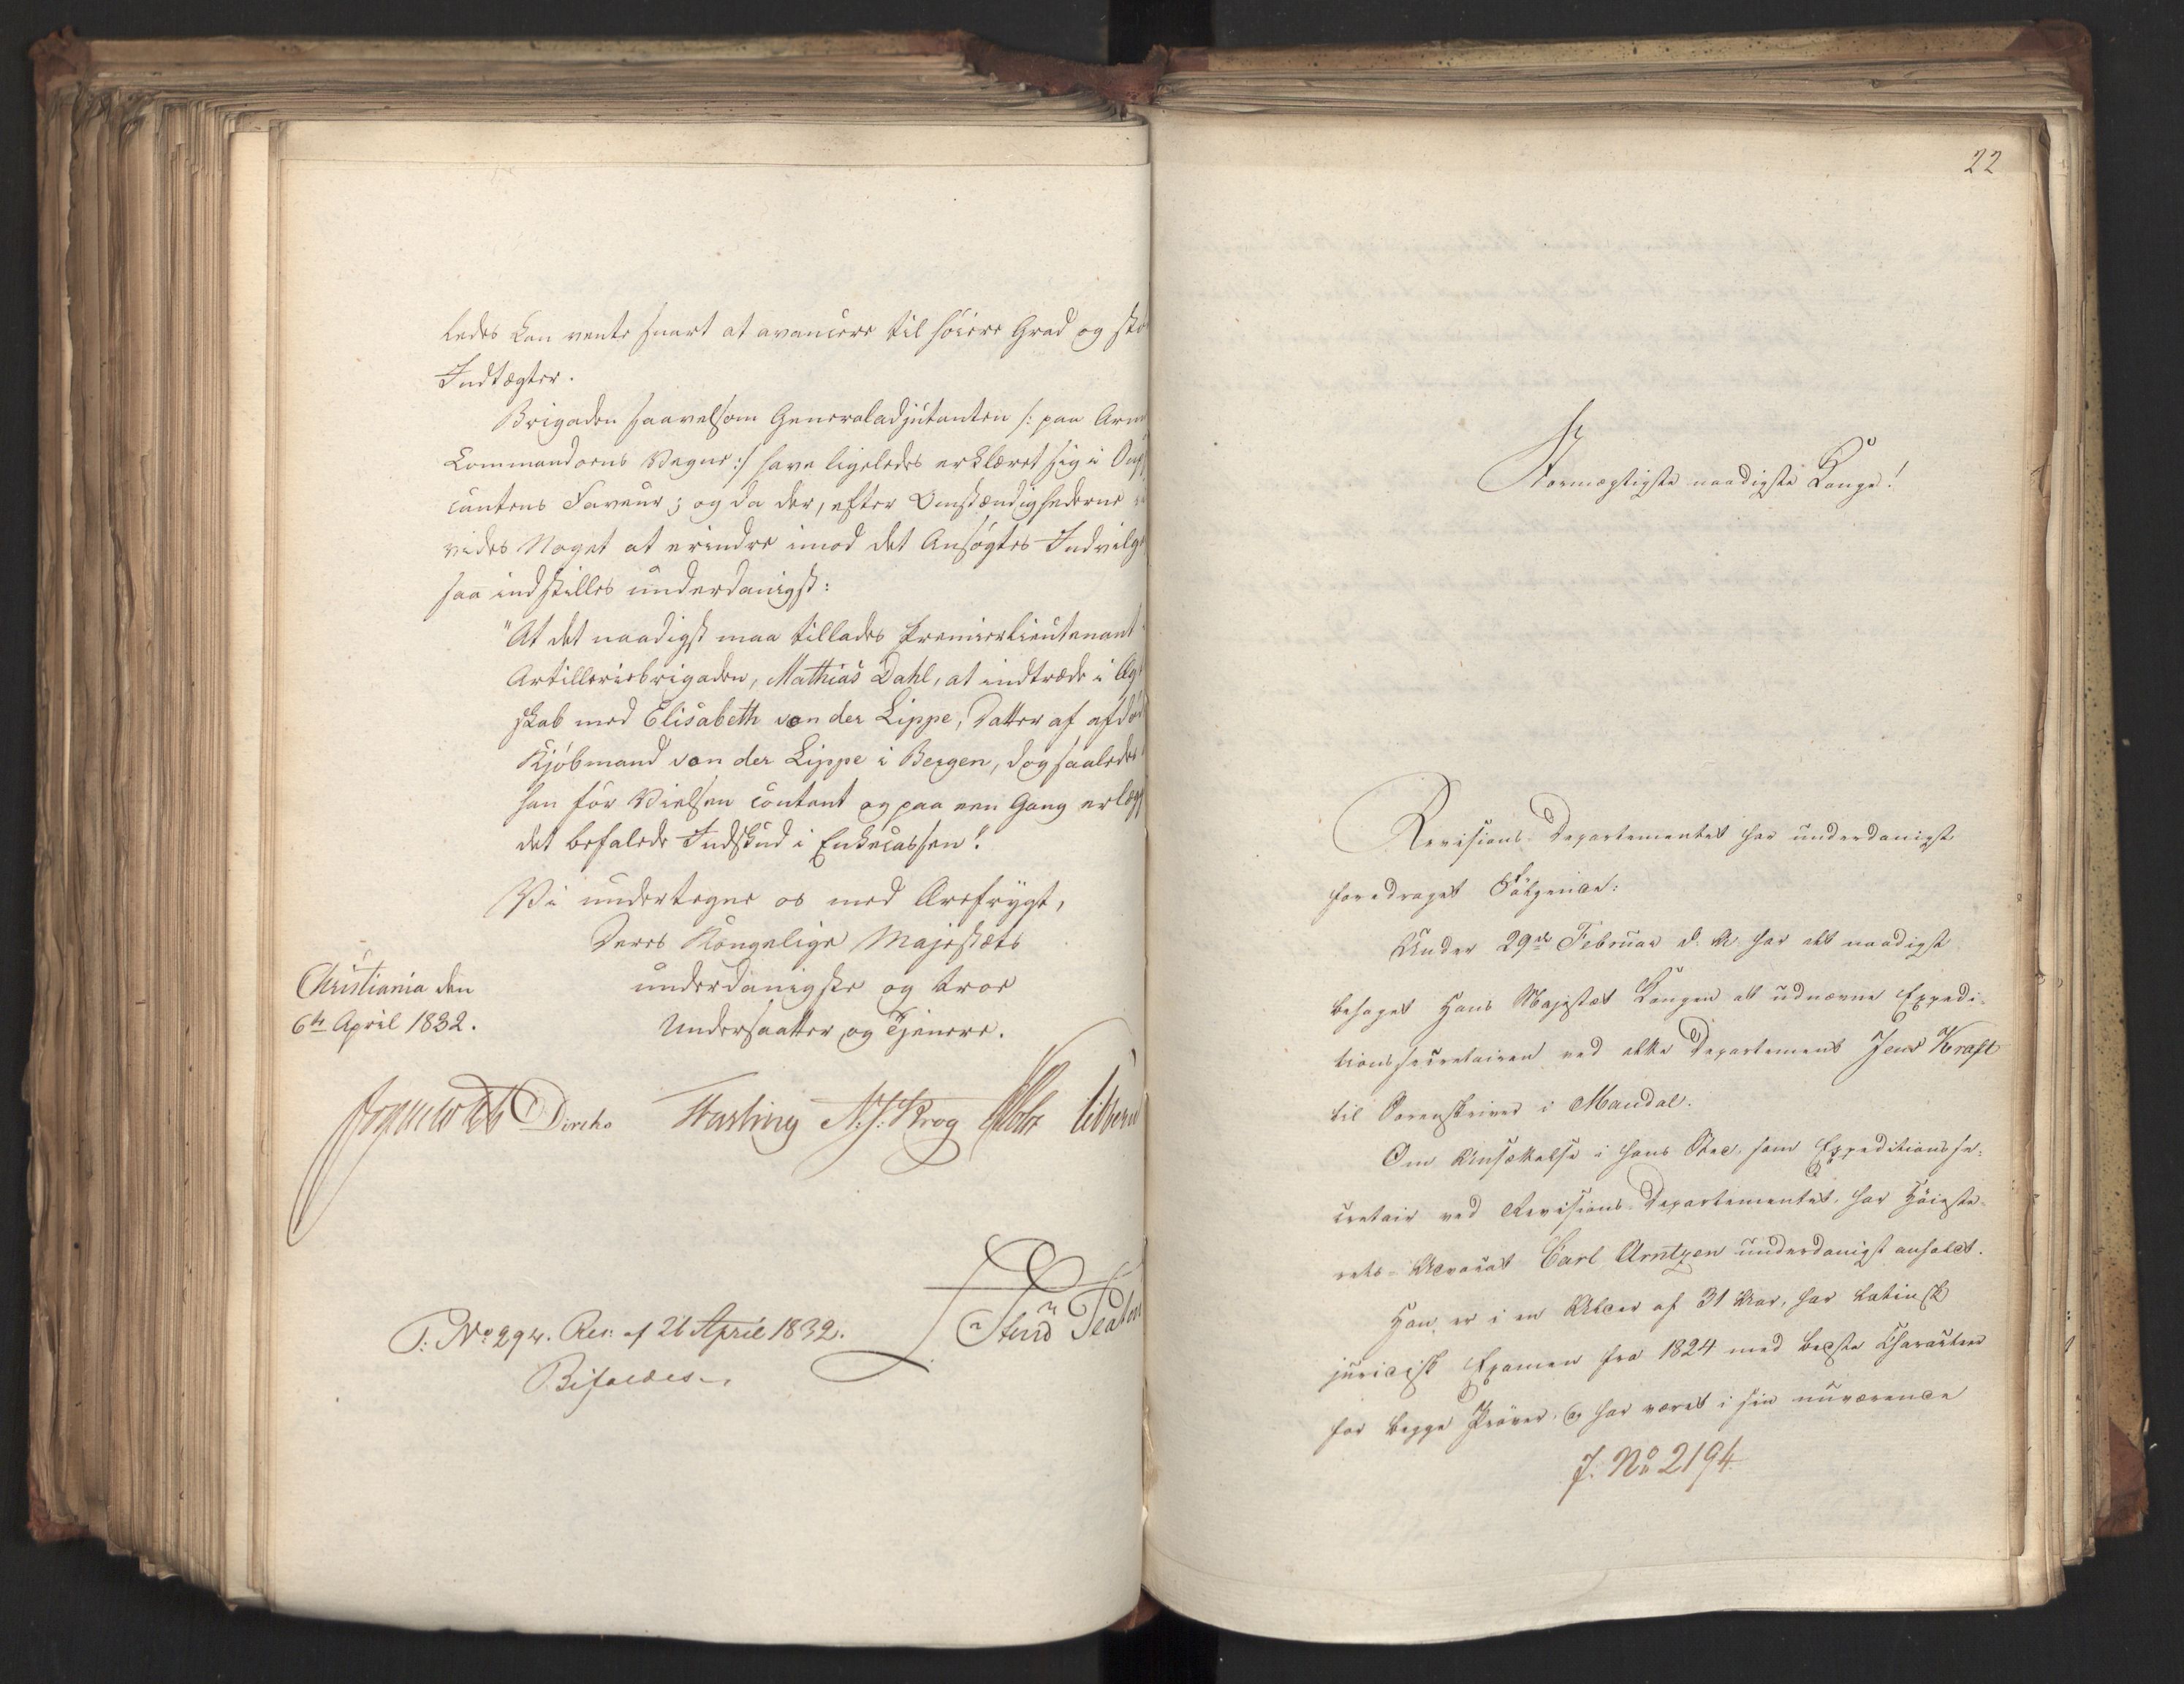 ledes kan vente snart at avancere til høiere Grad og stø
Indtægter.
Brigaden saavelsom Generaladjutanten /: paa Arm
Commandoens Vegne :/ have ligeledes erklæret sig i Supp
cantens Faveur; og da der, efter Omstændighederne
vides Noget at erindre imod det Ansøgtes Indvilge
saa indstilles underdanigst:
"At det naadigst maa tillades Premierlieutenant
Artilleriebrigaden, Mathias Dahl, at indtræde i Ægt
skab med Elisabeth von der Lippe, Datter af afdød
Kjøbmand von der Lippe i Bergen, dog saaledes
han før Vielsen contant og paa een Gang erlægg
det befalede Indskud i Enkecassen."
Vi undertegne os med Ærefrygt,
Deres Kongelige Majestæts
underdanigste og troe
Undersaatter og Tjenere.
Christiania den
6te April 1832.
Diriks N. J. Krog
P: No 294. Res: af 21 April 1832.
Bifaldes.
22
Stormægtigste naadigste Konge!
Revisions-Departementet har underdanigst
foredraget Følgende:
Under 29de Februar d. A. har det naadigst
behaget Hans Majestæt Kongen at udnævne Expedi-
tionssecretairen ved dette Departement Jens Kraft
til Sorenskriver i Mandal.
Om Ansættelse i hans Sted, som Expeditionsse-
cretair ved Revisions-Departementet, har Høieste-
rets-Advocat Carl Arntzen underdanigst anholdt.
Han er i en Alder af 31 Aar, har latinsk
juridisk Examen fra 1824 med bedste Charakteer
for begge Prøver, og har været i sin nuværende
J. No 2194